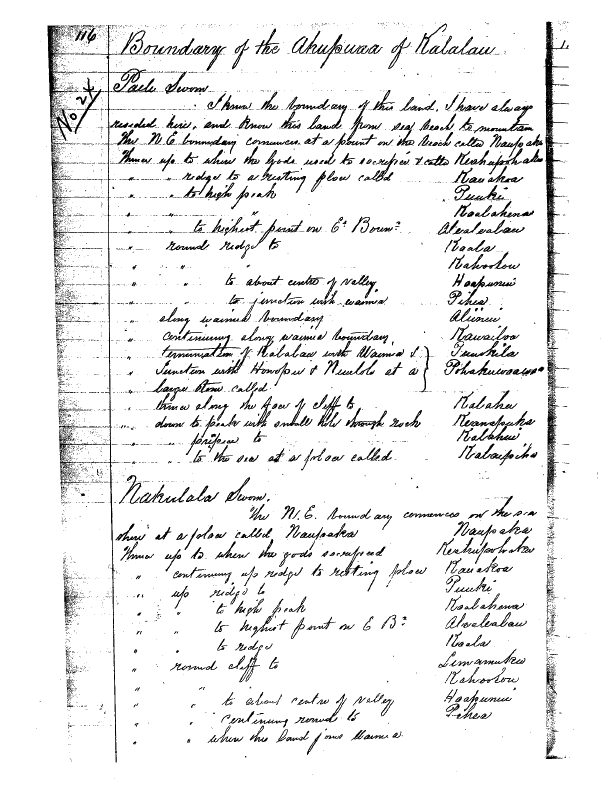 116
Boundary of the Ahupuaa of Kalalau
No 24
Paele Sworn
I know the boundary of this land. I have always
resided here, and know this land from sea beach to mountain
The N.E. boundary comences at a point on the beach called Naupaka
Thence up to where the Gods used to sacrifice & called
" " ridge to a resting place called Kauakoa
" " to high peak Puuki
" " " Koalahena
" " to highest point on Et Boundy Alealealau
" round ridge to Kaala
" " Kahoolou
" " to about centre of valley Haapunui
" " to junction with waimea Pihea
" along waimea boundary Aliinui
" continuing along waimea boundary Kawailoa
" termination of Kalalau with Waimea &
" Junction with Honopu & Nualolo at a
" large stone called
" thence along the face of cliff to Kalahu
" down to peak with small hole through rock Keanapuka
" " precipice to Kalahu
" " to the sea at a place called
Nakulala Sworn.
The N.E. boundary commences on the sea
shore at a place called Naupaka Naupaka
Thence up to where the gods sacrificed
" continuing up ridge to resting place Kauakoa
" up ridge to Puuki
" " to high peak Koalahena
" " to highest point on E By Alealealau
" " to ridge Kaala
" round cliff to Limamuku
" " Kahoolou
" " to about centre of valley Haapunui
" " continuing round to Pihea
" " where this land joins Waimea